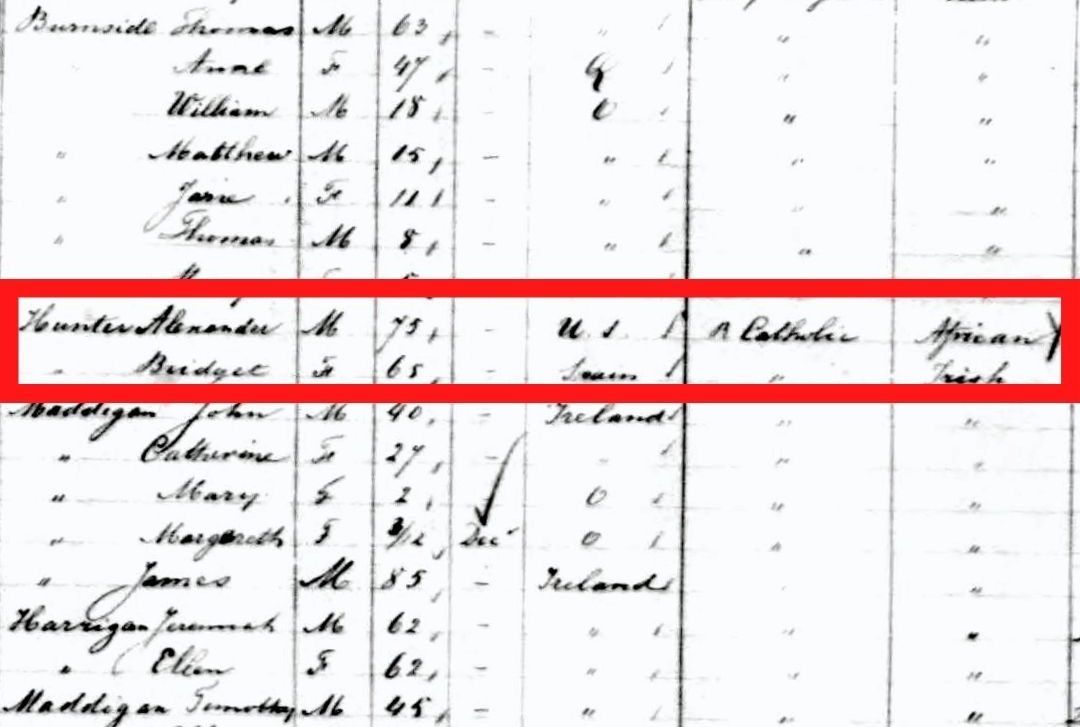 Burnside Thomas M 63 - " " "
Anne F 47 - Q " "
William M 18 - O " "
" Matthew M 15 - " " "
" Jane F 11 " " "
" Thomas M 8 - " " "
Hunter Alexander M 75 - U. S R Catholic African
" Bridget F 65 - " Irish
Maddigan John M 40 - Ireland " "
" Catherine F 27 - " " "
" Mary F 2 - O " "
" Margareth F 3/12 Dec O " "
" James M 85 - Ireland " "
Harrigan Jeremiah M 62 - " " "
" Ellen F 62 - " " "
Maddigan Timothy M 45 - " " "